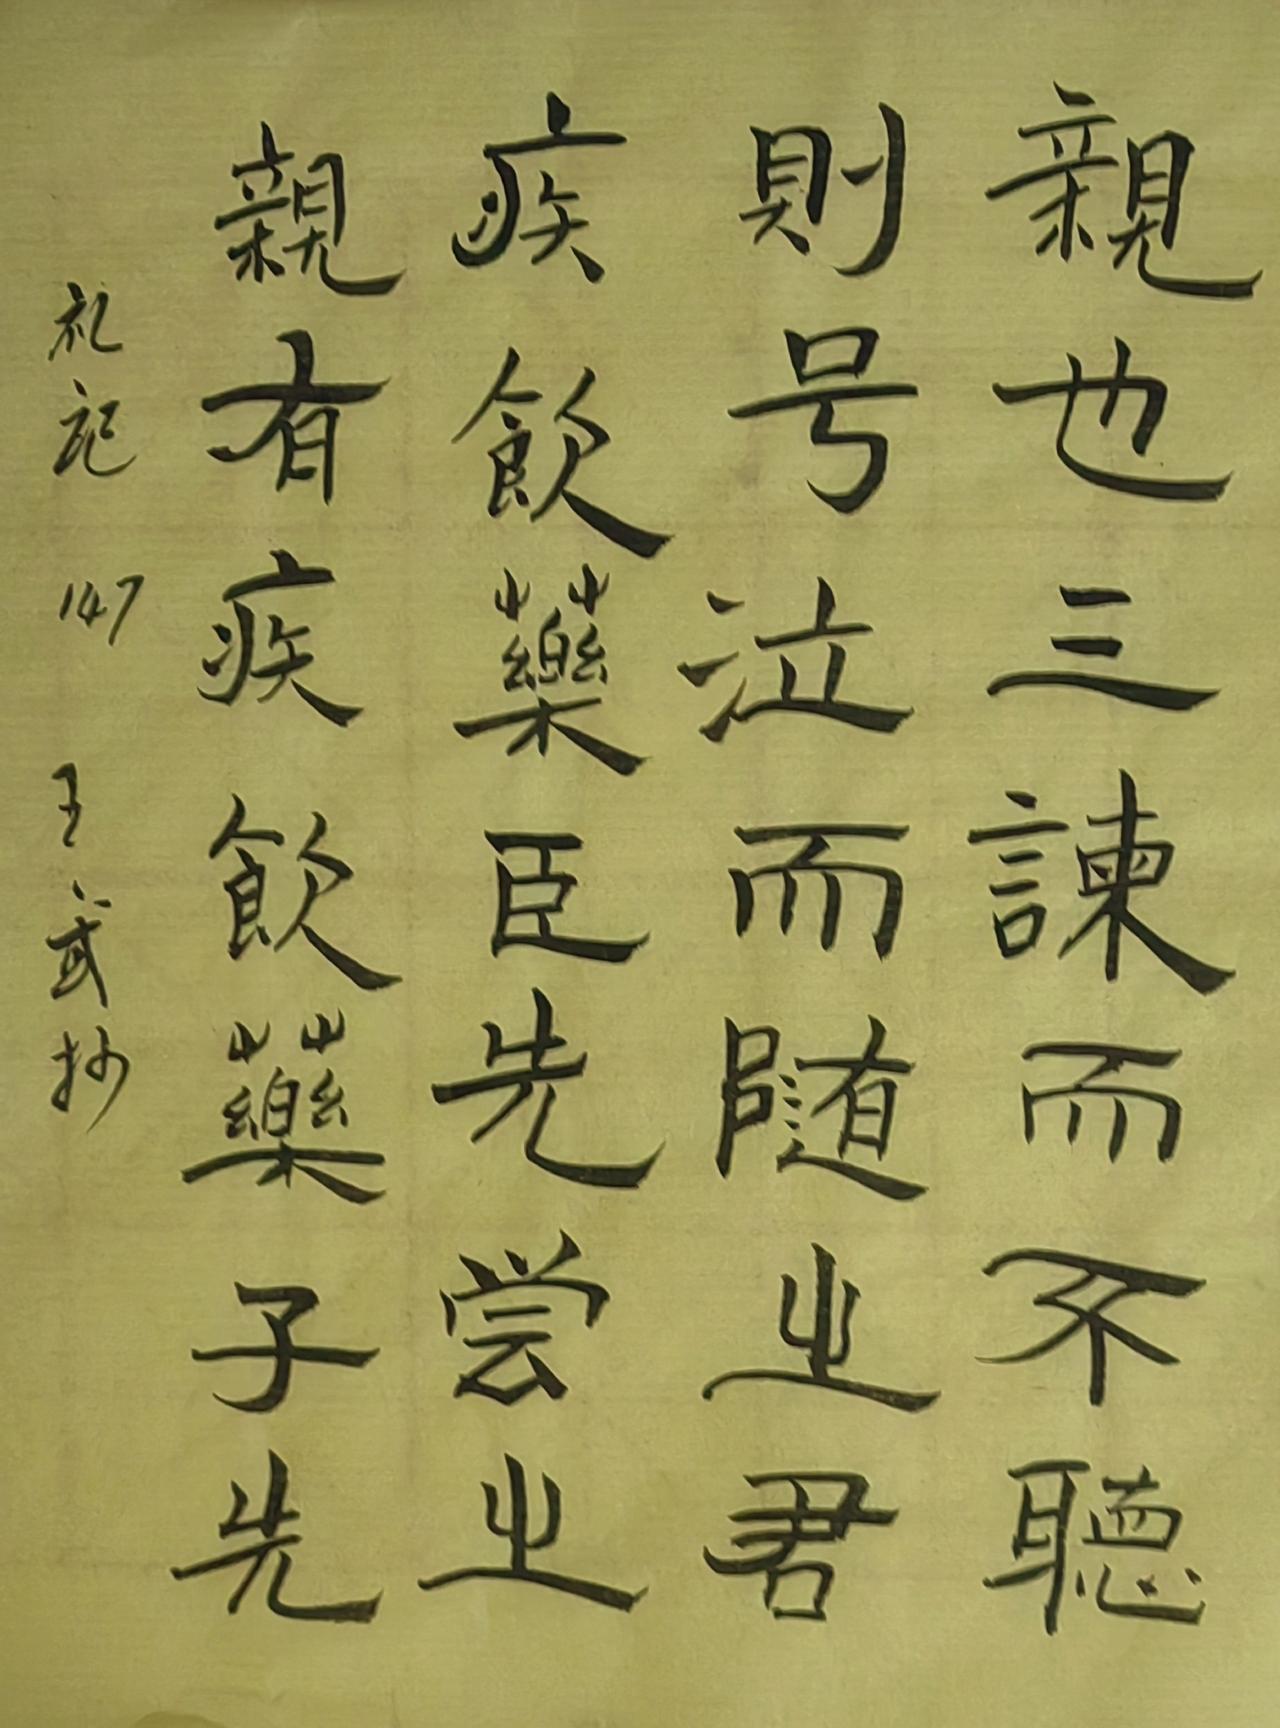 親也三諫而不聽
則号泣而随之君
疾飲藥臣先尝之
親有疾飲藥子先
礼記 147 王武抄